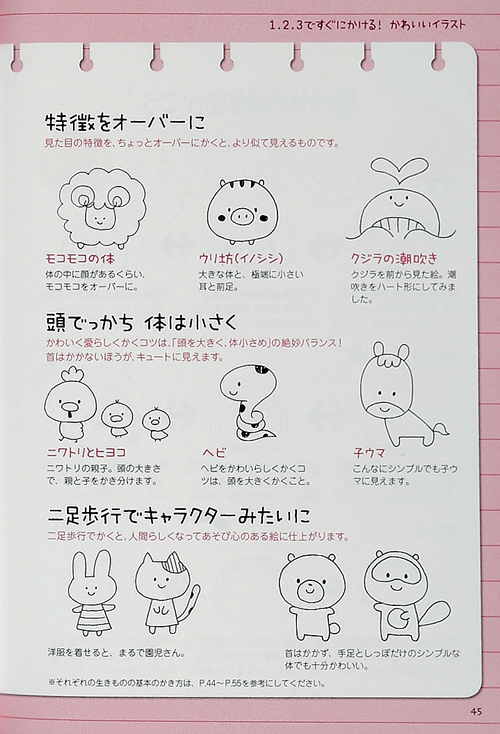 1.2.3ですぐにかける! かわいいイラスト
特徴をオーバーに
見た目の特徴を、ちょっとオーバーにかくと、より似て見えるものです。
モコモコの体
体の中に顔があるくらい、
モコモコをオーバーに。
ウリ坊(イノシシ)
大きな体と、極端に小さい
耳と前足。
クジラの潮吹き
クジラを前から見た絵。潮
吹きをハート形にしてみま
した。
頭でっかち 体は小さく
かわいく愛らしくかくコツは、「頭を大きく、体小さめ」の絶妙バランス!
首はかかないほうが、キュートに見えます。
ニワトリとヒヨコ
ニワトリの親子。頭の大きさ
で、親と子をかき分けます。
ヘビ
ヘビをかわいらしくかくコ
ツは、頭を大きくかくこと。
子ウマ
こんなにシンプルでも子ウ
マに見えます。
二足歩行でキャラクターみたいに
二足歩行でかくと、人間らしくなってあそび心のある絵に仕上がります。
洋服を着せると、まるで園児さん。
首はかかず、手足としっぽだけのシンプルな
体でも十分かわいい。
※それぞれの生きものの基本のかき方は、P.44～P.55を参考にしてください。
45